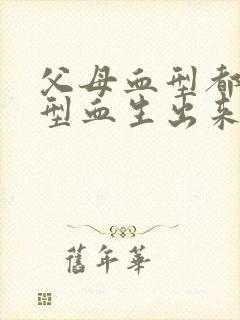 父母血型都
型血生出来
舊年華